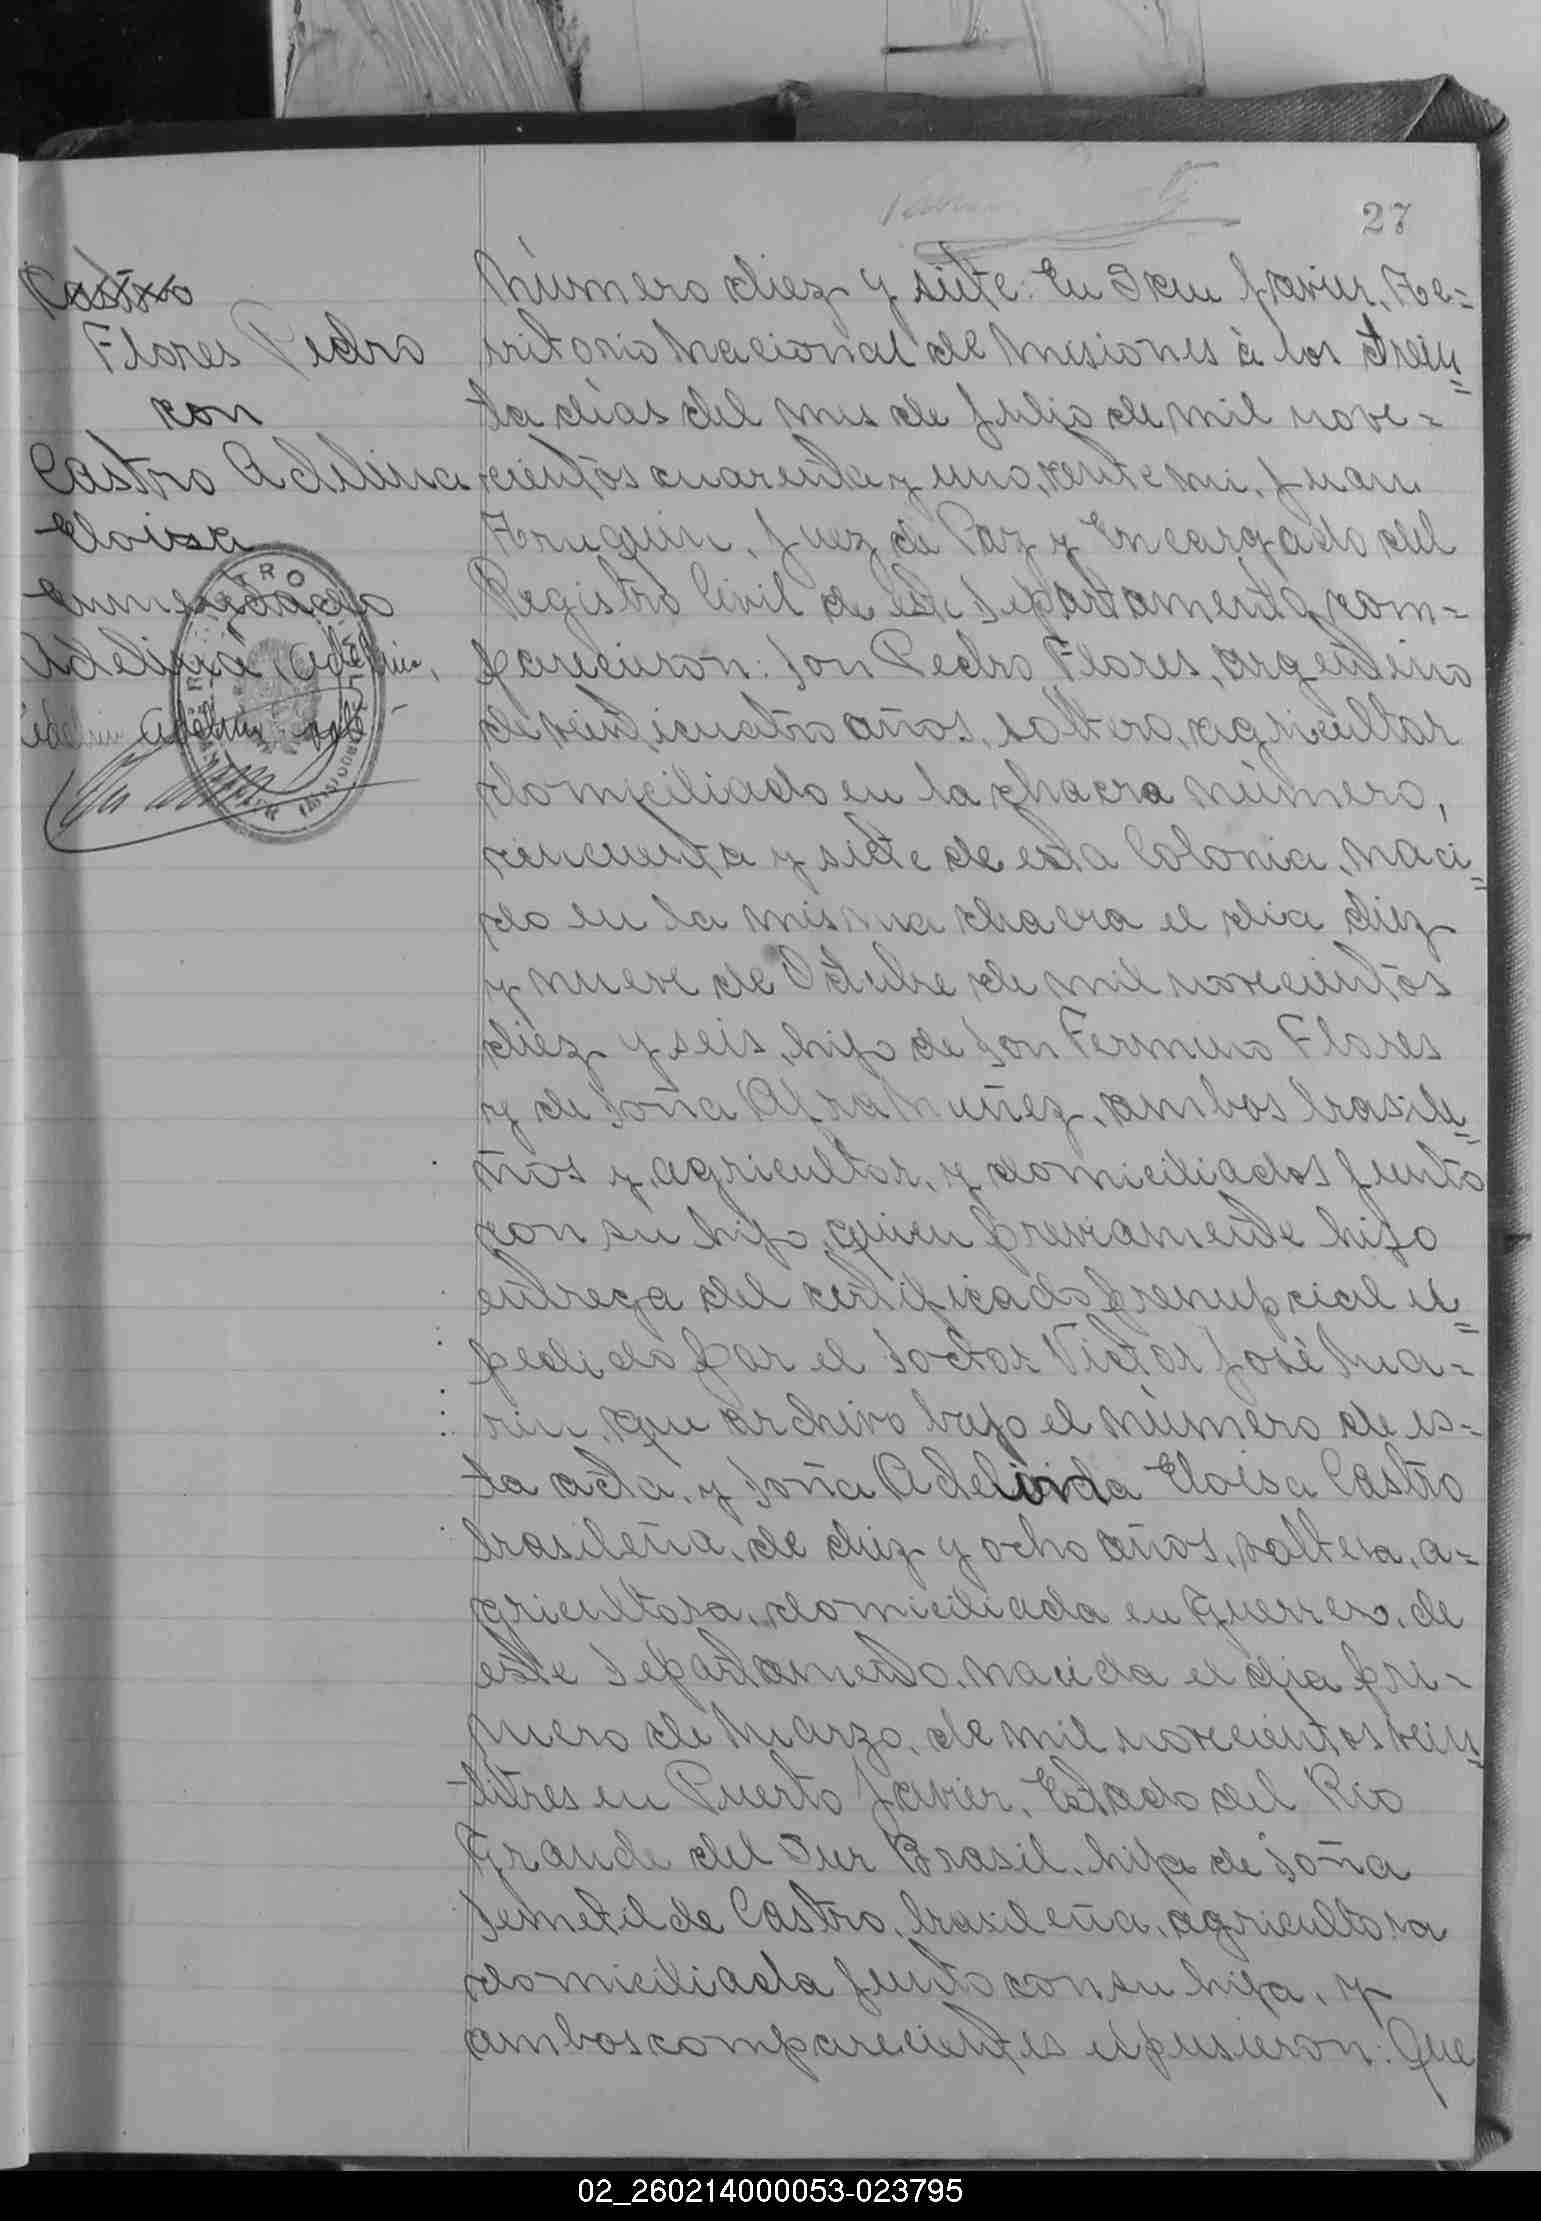 27
Castro
Flores Pedro
con
Castro Adelina
Eloisa
enmendado
Adelina, Adelin,
Adelin vale
Número diez y siete: En San Javier, Te=
rritorio Nacional de Misiones à los trein=
ta días del mes de Julio de mil nove=
cientos cuarenta y uno, ante mi, Juan
Juez de Paz y Encargado del
Registro Civil de este Departamento, com=
parecieron: Don Pedro Flores, argentino
de veinticuatro años, soltero, agricultor
domiciliado en la chacra número,
cincuenta y siete de esta Colonia, naci=
do en la misma chacra el dia diez
y nueve de Octubre de mil novecientos
diez y seis, hijo de Don Fermino Flores
y de Doña Afra Nuñez, ambos brasile=
ños y agricultor, y domiciliados junto
con su hijo, quien previamente hizo
entrega del certificado prenupcial es=
pedido por el Doctor Victor José Ma=
rin, que archivo bajo el número de es=
ta acta, y Doña Adelina Eloisa Castro
brasileña, de diez y ocho años, soltera, a=
gricultora, domiciliada en Guerrero, de
este Departamento, nacida el dia pri=
mero de Marzo, de mil novecientos vein=
titres en Puerto Javier, Estado del Rio
Grande del Sur Brasil, hija de Doña
Demetilde Castro, brasileña, agricultora
domiciliada junto con su hija, y
ambos comparecientes espusieron: Que
02_260214000053-023795